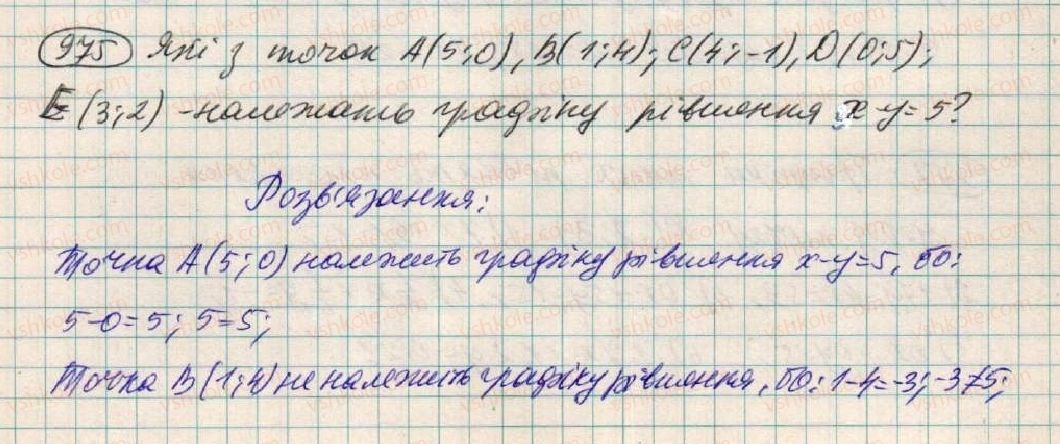 975 Які з точок A(5;0), B(1;4); C(4;-1), D(0;5);
E(3;2) - належать графіку рівняння x-y=5?
Розв'язання:
Точка A(5;0) належить графіку рівняння x-y=5, бо:
5-0=5; 5=5;
Точка B(1;4) не належить графіку рівняння, бо: 1-4=-3; -3≠5;